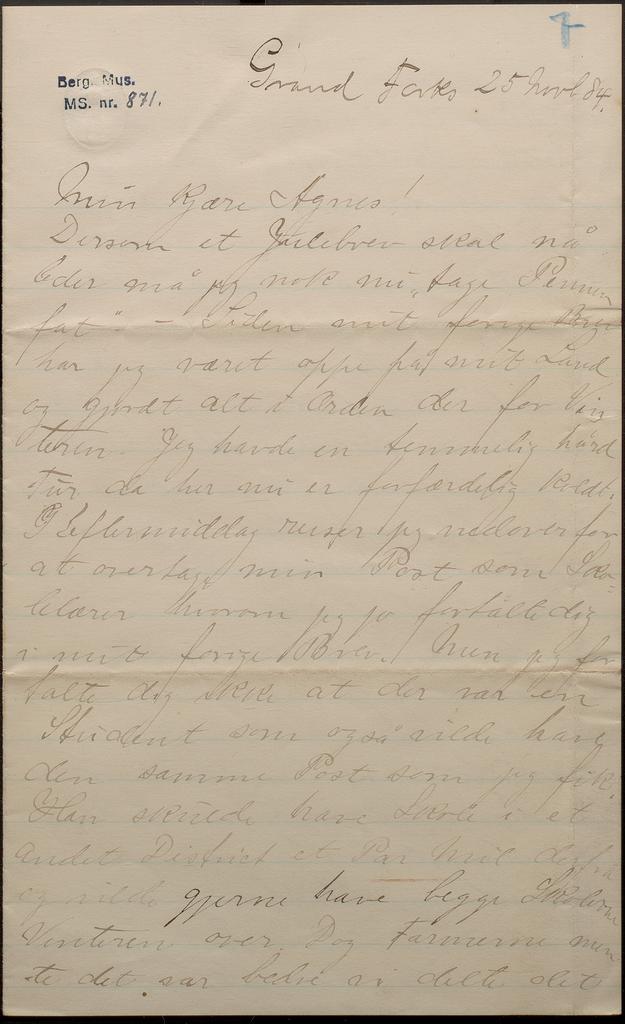 7
Berg. Mus.
MS. nr. 871.
Grand Forks 25 Novb 84.
Min kjære Agnes!
Dersom et Julebrev skal nå
Eder må jeg nok nu "tage Pennen
fat". - Siden mit forige Brev
har jeg været oppe på mit Land
og gjordt alt i Orden der for Vin
teren. Jeg havde en temmelig hård
Tur da her nu er forfærdelig koldt.
I Eftermiddag reiser jeg nedover for
at overtage min Post som Sko=
lelærer hvorom jeg jo fortalte dig
i mit forige Brev. Men jeg for
talte dig ikke at der var en
Student som også vilde have
den samme Post som jeg fik.
Han skulde have Skole i et
andet District et Par Mil derfra
og vilde gjerne have begge Skolerne
Vinteren over. Dog Farmerne men
te det var bedre vi delte det